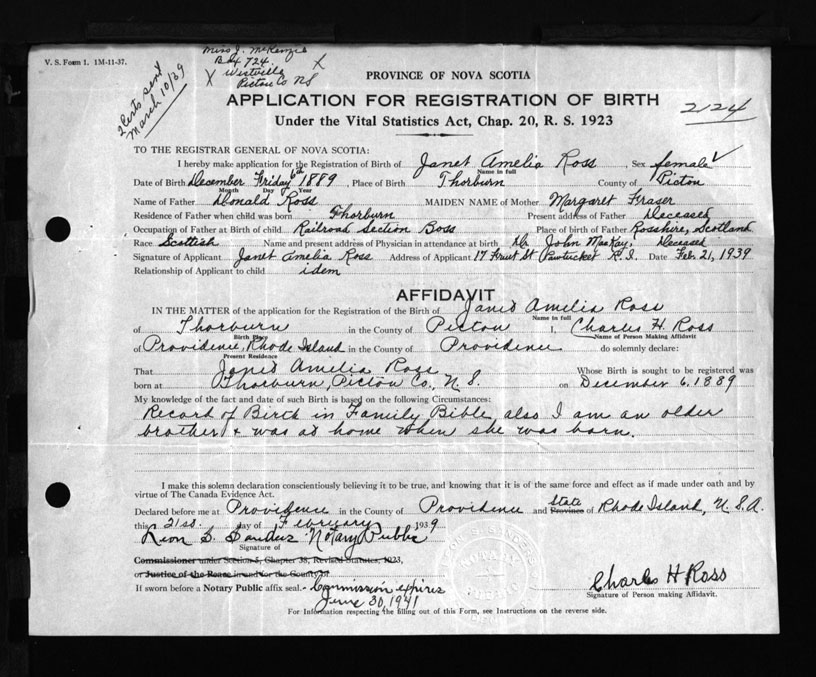 V. S. Form 1. 1M-11-37.
Miss J. McKenzie
Box 724.
X Westville X
Pictou Co NS
2 Certs sent
March 10/39
PROVINCE OF NOVA SCOTIA
APPLICATION FOR REGISTRATION OF BIRTH
2124
Under the Vital Statistics Act, Chap. 20, R. S. 1923
TO THE REGISTRAR GENERAL OF NOVA SCOTIA:
I hereby make application for the Registration of Birth of Janet Amelia Ross, Sex female
Name in full
Date of Birth December Friday 6th 1889, Place of Birth Thorburn County of Pictou
Month Day Year
Name of Father Donald Ross MAIDEN NAME of Mother Margaret Fraser
Residence of Father when child was born Thorburn Present address of Father Deceased
Occupation of Father at Birth of child Railroad Section Boss Place of birth of Father Rosshire, Scotland
Race Scottish Name and present address of Physician in attendance at birth Dr. John MacKay, Deceased
Signature of Applicant Janet Amelia Ross Address of Applicant 17 Fruit St Pawtucket R.I. Date Feb. 21, 1939
Relationship of Applicant to child idem
AFFIDAVIT
IN THE MATTER of the application for the Registration of the Birth of Janet Amelia Ross
Name in full
of Thorburn in the County of Pictou I, Charles H. Ross
Birth Place Name of Person Making Affidavit
of Providence, Rhode Island in the County of Providence do solemnly declare:
Present Residence
That Janet Amelia Ross Whose Birth is sought to be registered was
born at Thorburn, Pictou Co., N. S. on December 6, 1889
My knowledge of the fact and date of such Birth is based on the following Circumstances:
Record of Birth in Family Bible, also I am an older
brother & was at home when she was born.
I make this solemn declaration conscientiously believing it to be true, and knowing that it is of the same force and effect as if made under oath and by
virtue of The Canada Evidence Act.
Declared before me at Providence in the County of Providence and State Province of Rhode Island, U. S. A.
this 21st. day of February 1939
Leon S. Sanders Notary Public
Signature of
Commissioner under Section 5, Chapter 38, Revised Statutes, 1923,
or Justice of the Peace in and for the County of
If sworn before a Notary Public affix seal. - Commission expires
June 30, 1941
Charles H Ross
Signature of Person making Affidavit.
For Information respecting the filling out of this Form, see Instructions on the reverse side.